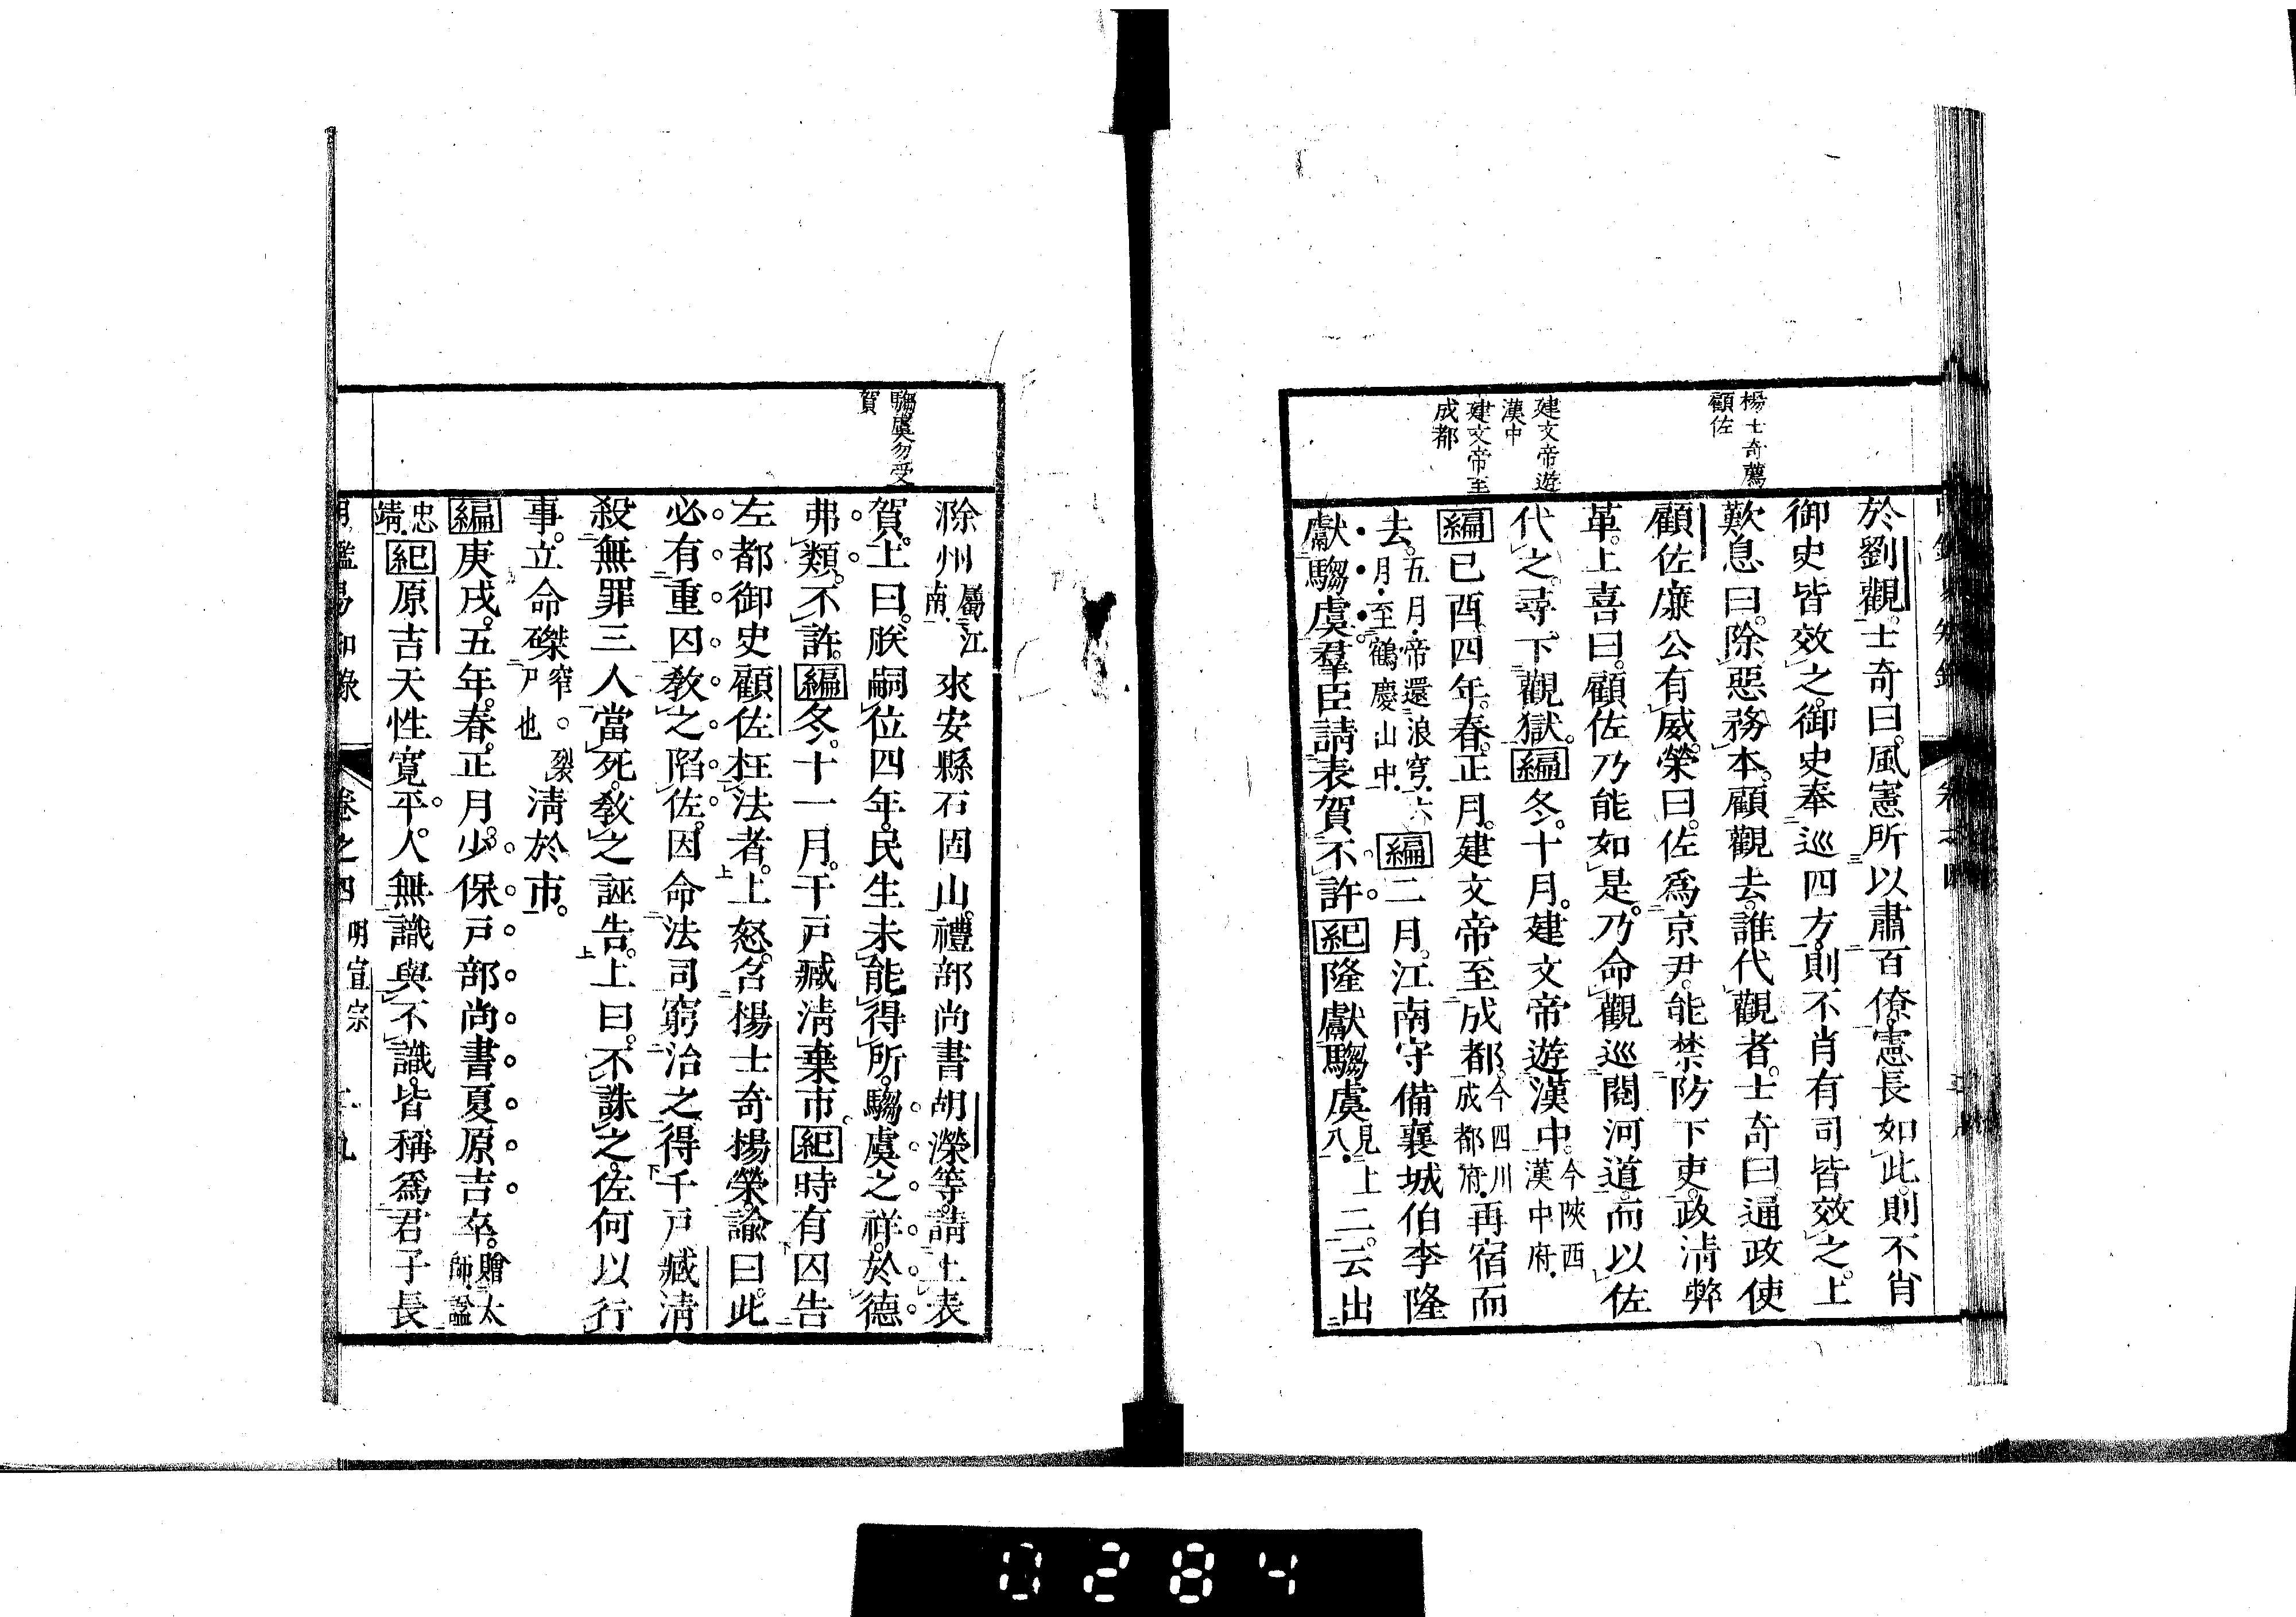 楊士奇薦
顧佐
建文帝遊
漢中
建文帝至
成都
於劉觀。士奇曰。風憲所以肅百僚。憲長如此。則不肖
御史皆效之。御史奉巡四方。則不肖有司皆效之。上
歎息曰。除惡務本。顧觀去。誰代觀者。士奇曰。通政使
顧佐廉公有威。榮曰。佐爲京尹。能禁防下吏。政淸弊
革。上喜曰。顧佐乃能如是。乃命觀巡閱河道。而以佐
代之。尋下觀獄。編冬。十月。建文帝遊漢中。今陝西漢中府。
編己酉。四年。春。正月。建文帝至成都。今四川成都府。再宿而
去。五月。帝還浪穹。六月。至鶴慶山中。編二月。江南守備襄城伯李隆
獻騶虞。羣臣請表賀。不許。紀隆獻騶虞見上八。二。云出
騶虞勿受
賀
滁州屬江南。來安縣石固山。禮部尚書胡濙等。請上表
賀。上曰。朕嗣位四年。民生未能得所。騶虞之祥。於德
弗類。不許。編冬。十一月。千戸臧淸棄市。紀時有囚告
左都御史顧佐枉法者。上怒。召楊士奇楊榮。諭曰。此
必有重囚教之陷佐。因命法司窮治之。得千戸臧淸
殺無罪三人當死。教之誣告。上曰。不誅之。佐何以行
事。立命磔窄。裂戸也淸於市。
編庚戌。五年。春。正月。少保戸部尚書夏原吉卒。贈太師。諡
忠靖。紀原吉天性寬平。人無識與不識。皆稱爲君子長
卷之四 明宣宗
0284